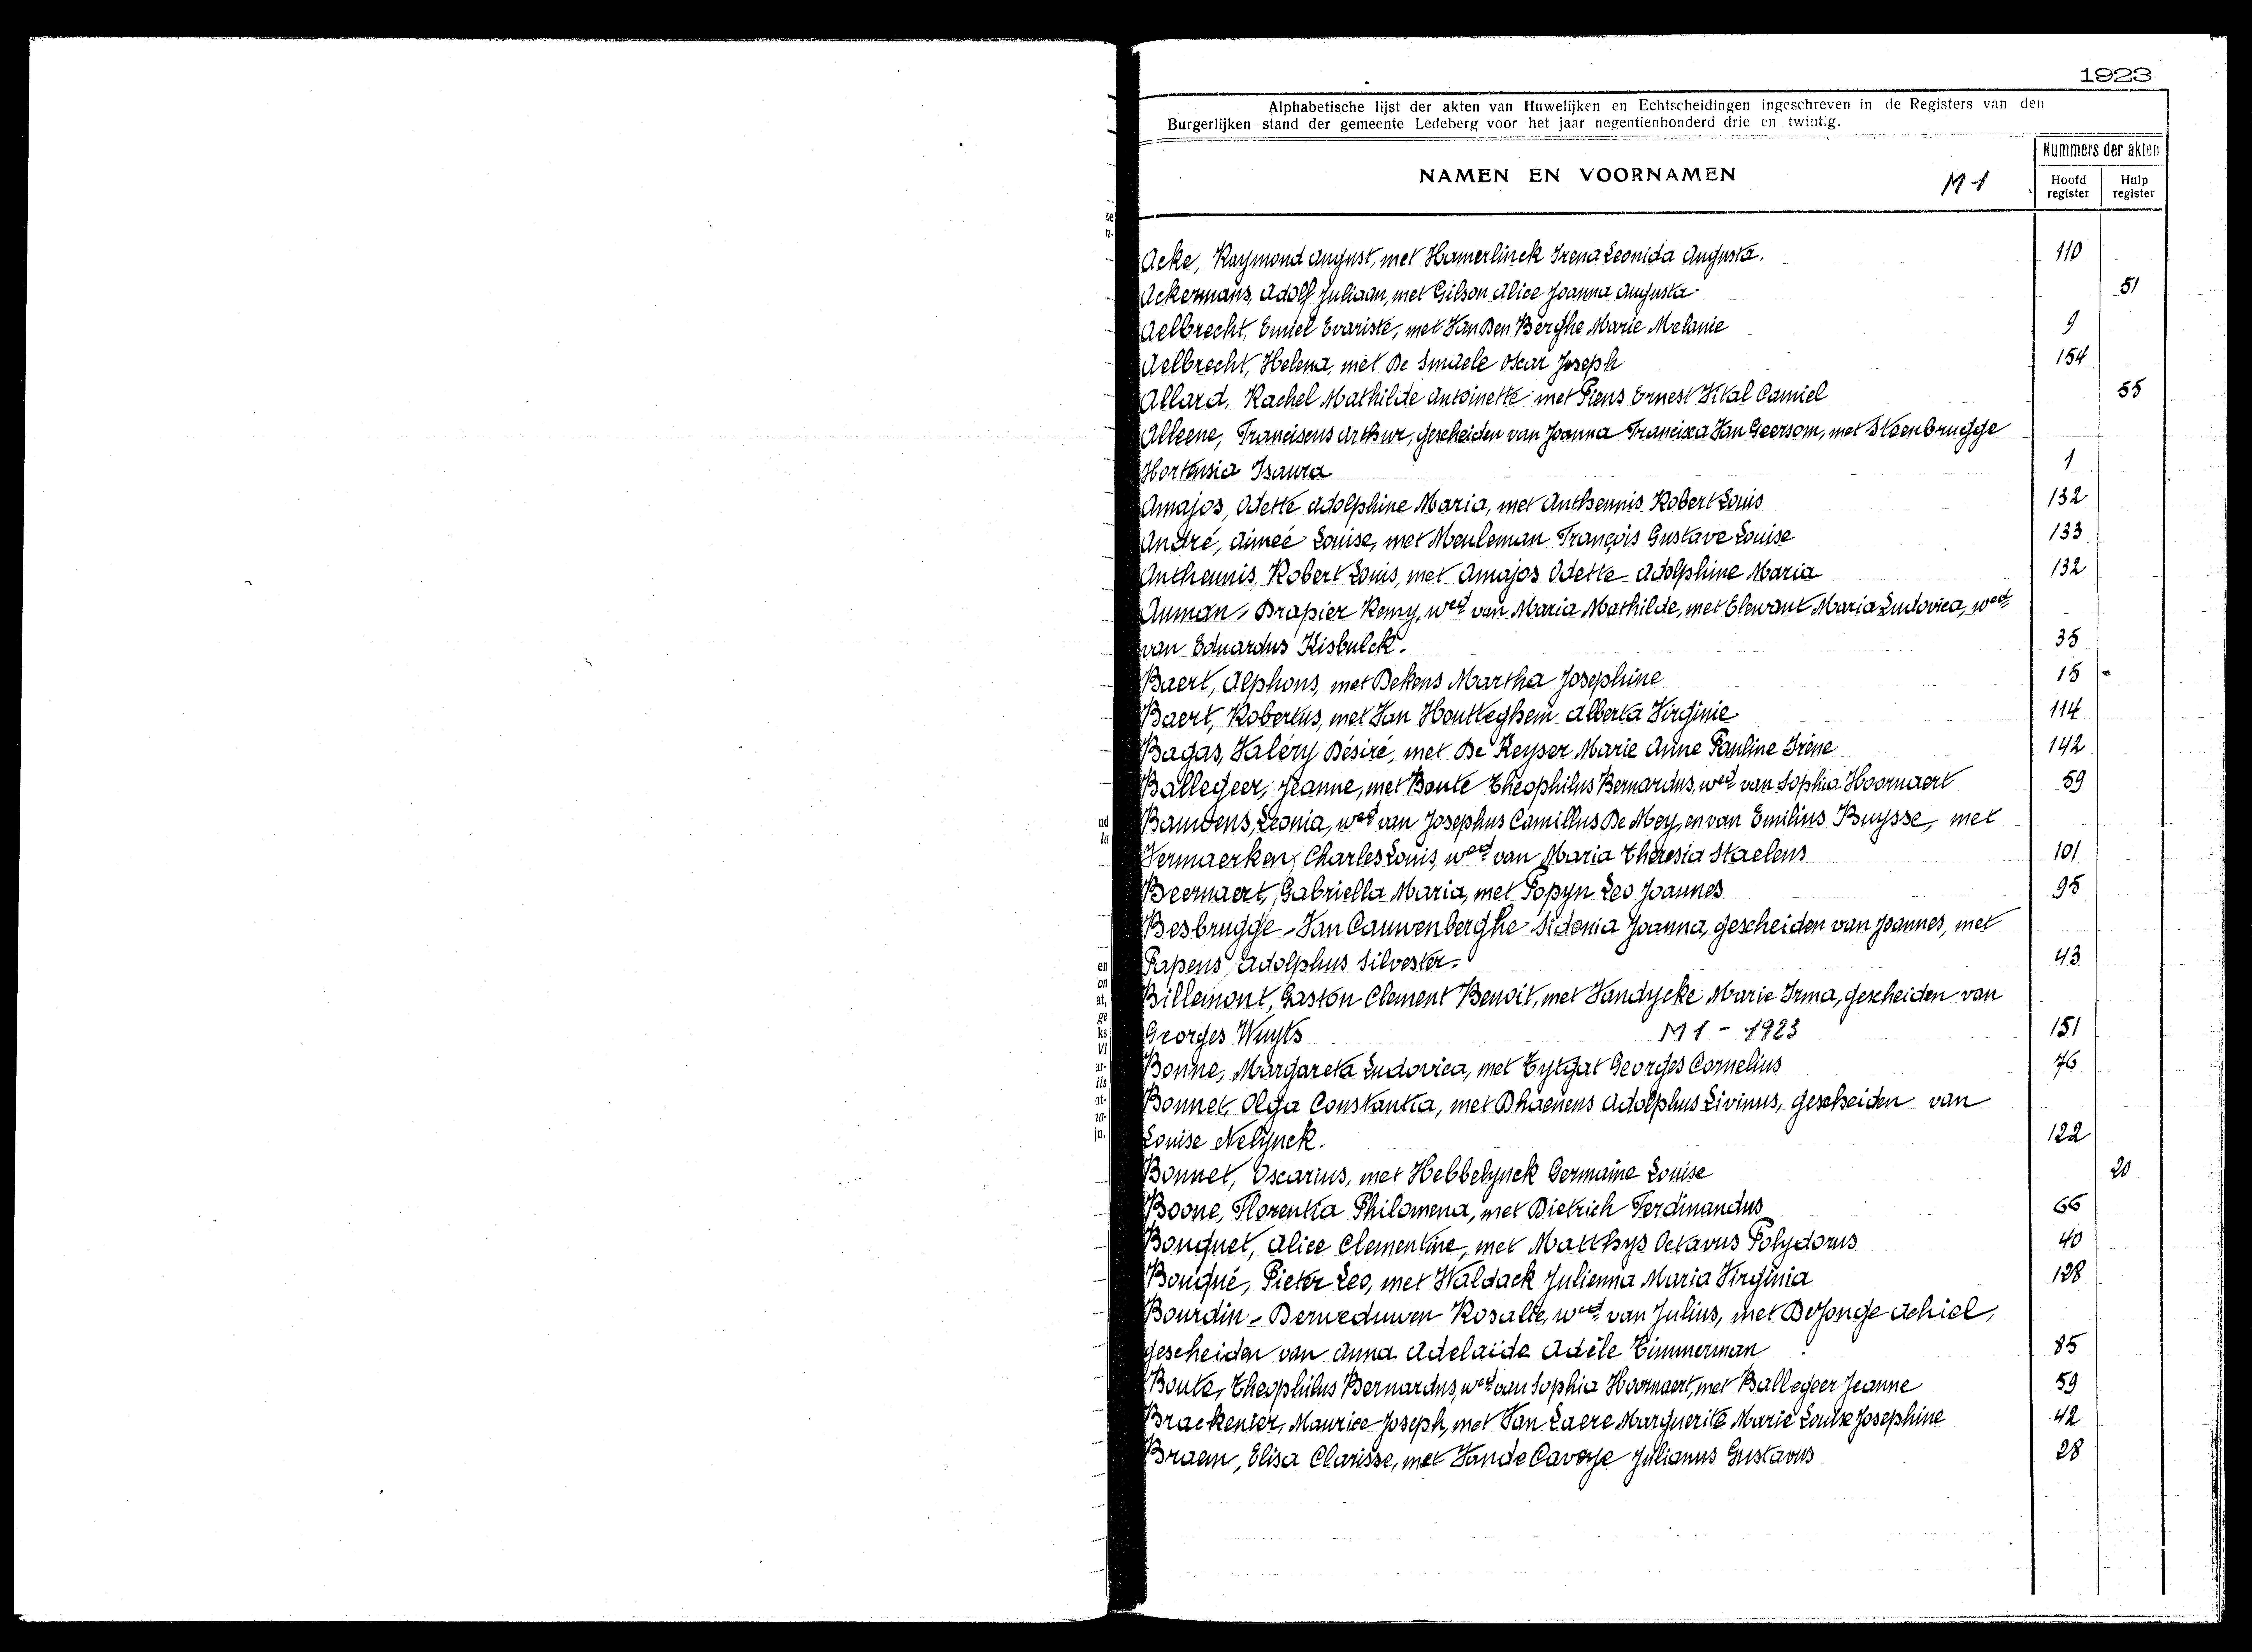 1923
Alphabetische lijst der akten van Huwelijken en Echtscheidingen ingeschreven in de Registers van den
Burgerlijken stand der gemeente Ledeberg voor het jaar negentienhonderd drie en twintig.
NAMEN EN VOORNAMEN M1 Nummers der akten
Hoofd register Hulp register
Acke, Raymond August, met Hamerlinck Irena Leonida Augusta. 110
Ackermans, Adolf Juliaan, met Gilson Alice Joanna Augusta 51
Aelbrecht, Emiel Evariste, met Van Den Berghe Marie Melanie 9
Aelbrecht, Helena, met De Smaele Oscar Joseph 154
Allard, Rachel Mathilde Antoinette met Piens Ernest Vital Camiel 55
Alleene, Franciscus Arthur, gescheiden van Joanna Francisca Van Geersom, met Steenbrugge
Hortensia Isaura 1
Amajos, Odette Adolphine Maria, met Antheunis Robert Louis 132
André, Aimeé Louise, met Meuleman François Gustave Louise 133
Antheunis, Robert Louis, met Amajos Odette Adolphine Maria 132
Auman, Drapier Remy, wed. van Maria Mathilde, met Elewaut Maria Ludovica, wed.
van Eduardus Kisbulck. 35
Baert, Alphons, met Dekens Martha Josephine 15 -
Baert, Robertus, met Van Houtteghem Alberta Virginie 114
Bagas, Valéry Désiré, met De Keyser Marie Anne Pauline Irène 142
Ballegeer, Jeanne, met Boute Theophilus Bernardus, wed. van Sophia Hoornaert 59
Bauwens, Leonia, wed. van Josephus Camillus De Mey, en van Emilius Buysse, met
Vermaerken, Charles Louis, wed. van Maria Theresia Staelens 101
Beernaert, Gabriella Maria, met Popyn Leo Joannes 95
Besbrugge - Van Cauwenberghe Sidonia Joanna, gescheiden van Joannes, met
Papens Adolphus Silvester. 43
Billemont, Gaston Clement Benoit, met Vandycke Marie Irma, gescheiden van
Georges Wuyts M1 - 1923 151
Bonne, Margareta Ludovica, met Tytgat Georges Cornelius 76
Bonnet, Olga Constantia, met Dhaenens Adolphus Livinus, gescheiden van
Louise Nelynck. 122
Bonnet, Oscarius, met Hebbelynck Germaine Louise 20
Boone, Florentia Philomena, met Dietrich Ferdinandus 66
Bouquet, Alice Clementine, met Matthys Octavus Polydorus 40
Bouqué, Pieter Leo, met Waldack Julienna Maria Virginia 128
Bourdin - Derweduwen Rosalie, wed. van Julius, met De Jonge Achiel,
gescheiden van Anna Adelaïde Adèle Timmerman 85
Boute, Theophilus Bernardus, wed. van Sophia Hoornaert, met Ballegeer Jeanne 59
Brackenier, Maurice Joseph, met Van Laere Marguerite Marie Louise Josephine 42
Braem, Elisa Clarisse, met Vande Caveye Julianus Gustavus 28